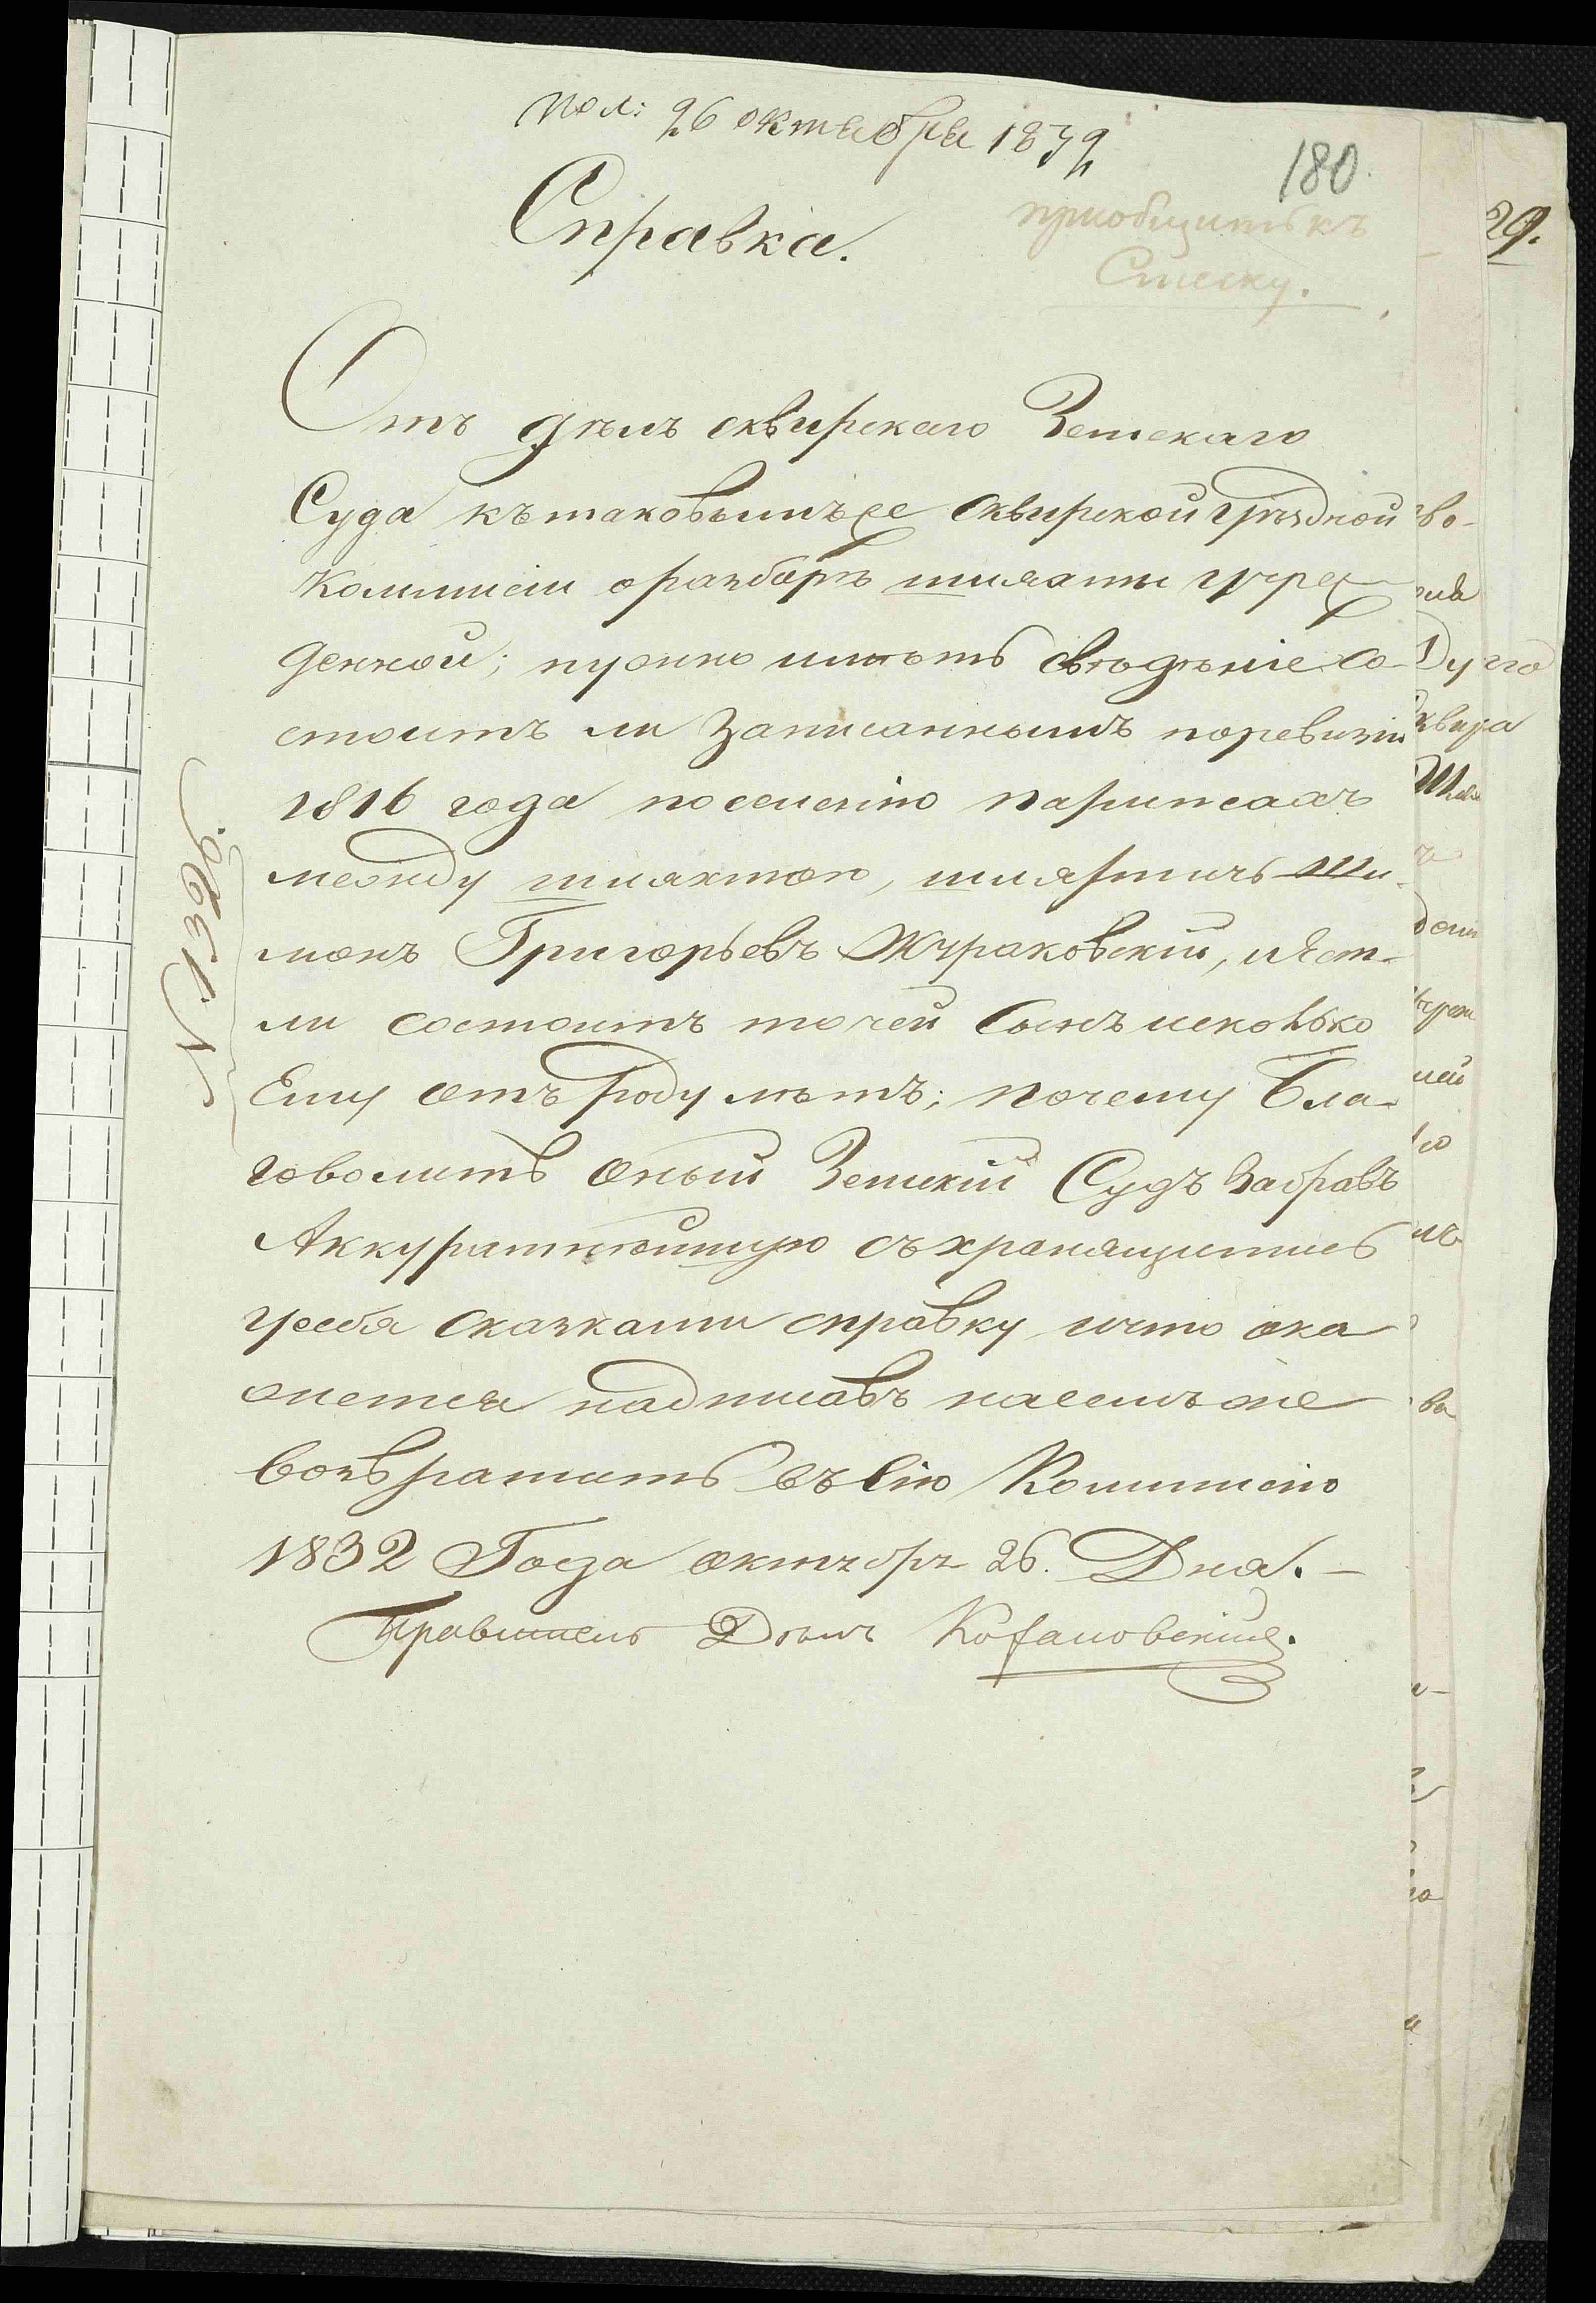 пол: 26 октября 1832
180.
Справка.
приобщить къ
Списку.
29.
Отъ дѣлъ сквирскаго Земскаго
Суда къ таковымъ же Сквирской уѣздной
Коммисіи о разборѣ шляхты учреж
денной; нужно имѣть свѣдѣніе со-
стоитъ ли Записаннымъ по ревизіи
1816 года по селенію
между шляхтою, шляхтичъ Ши-
монъ Григорьевъ Жураковскій, и
ли состоитъ то чей Сынъ и сколько
Ему отъ роду лѣтъ; почему Бла-
говолитъ оный Земскій Судъ Забравъ
Аккуратнѣйшую съ хранящимись
у себя сказками справку и что ока
жется надписавъ на семъ же
возвратить въ Сію Коммисію
1832 Года октябр 26. Дня. -
Правитель Дѣлъ
№ 1362.